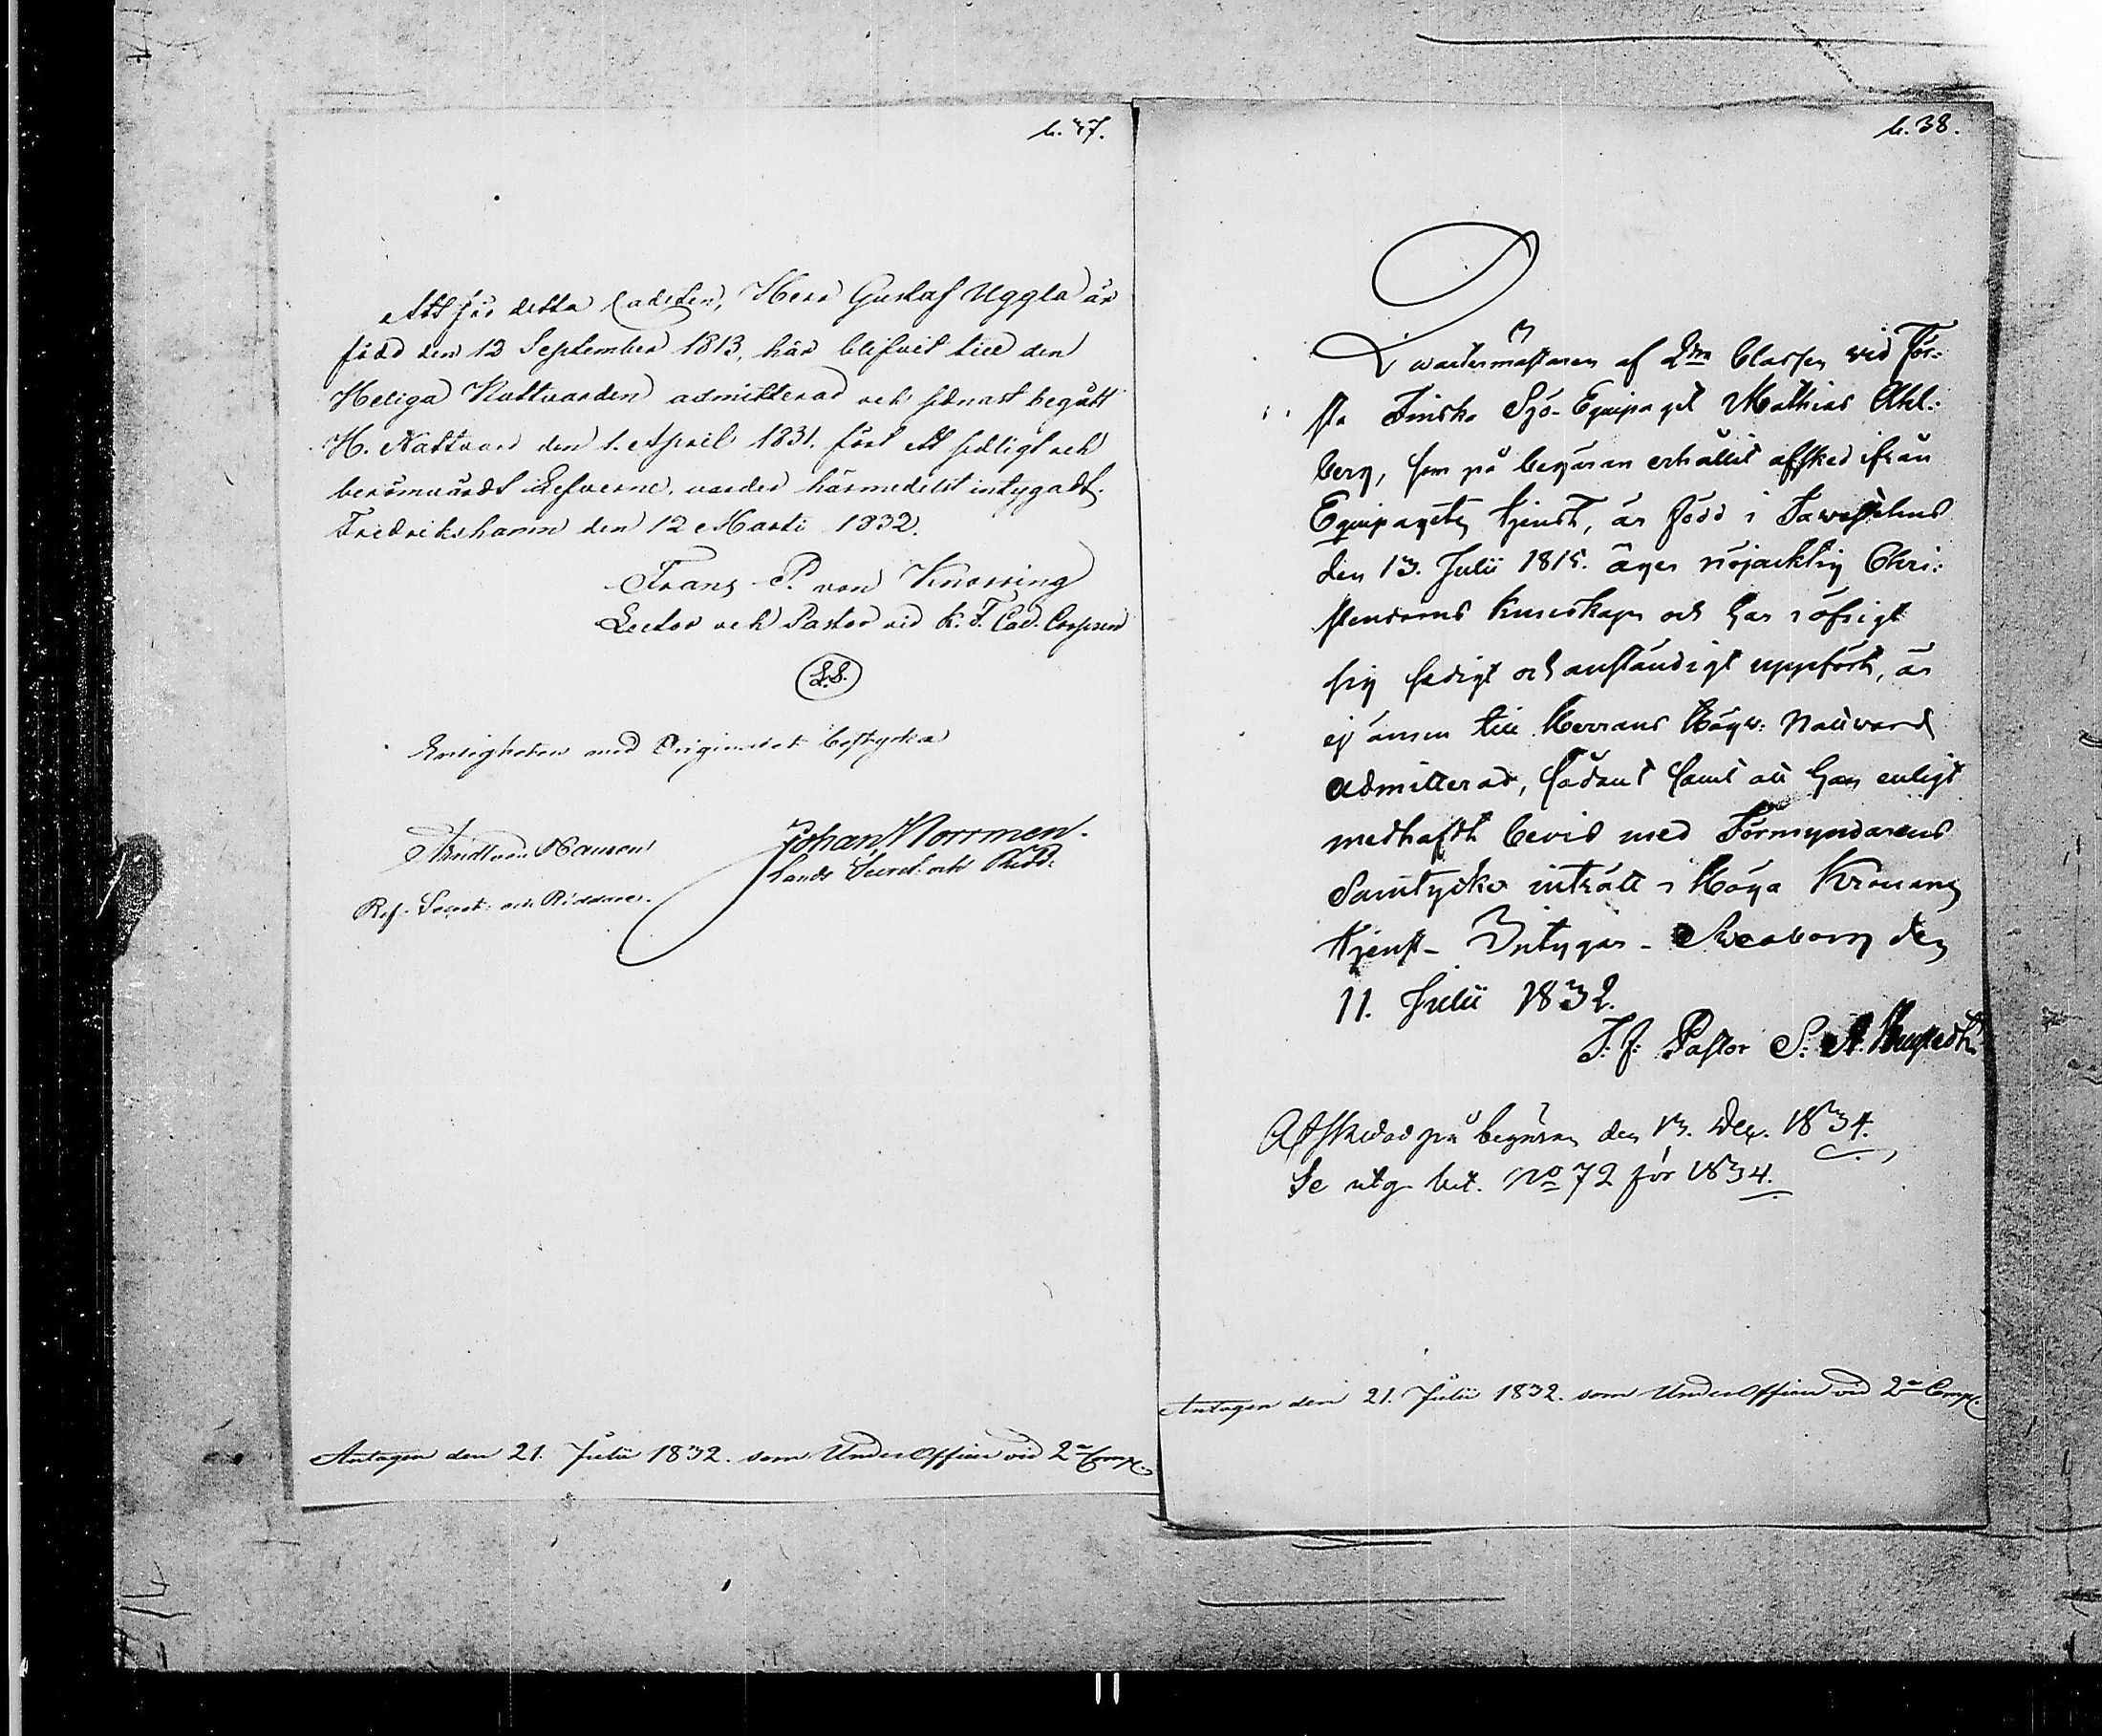 b. 37.
Att för detta Cadeten, Herr Gustaf Uggla är
född den 12 September 1813, här blifvit till den
Heliga Nattvarden admitterad och sednast begått
H. Nattvard den 1. April 1831. fört ett sedligt och
berömvärdt Lefverne, varder härmedelst intygadt.
Fredrikshamn den 12 Marti 1832.
Frans P. von Knorring
Lector och Pastor vid K. F. Cad. Corpsen
L.S.
Enligheten med Originalet bestyrka
Johan Norrmen.
Lands Secret. och Ridd.
Ref. Secret. och Riddare.
Antagen den 21. Julii 1832. som UnderOfficer vid 2a Comp.
b. 38.
Qwartermästaren af 2dra Classen vid För:
sta Finska Sjö-Equipaget Mathias Ahl:
berg, som på begäran erhållit afsked ifrån
Equipagets tjenst, är född i Tawastehus
den 13. Julii 1815. äger nöjacktig Chri:
stendoms kunskap och har i öfrigt
sig sedigt och anständigt uppfördt, är
ej ännu till Herrans Högw: Nattward
admitterad, sådant samt att han enligt
medhafdt bevis med Förmyndarens
Samtycke inträdt i Höga Kronans
tjenst - Intygar - Sweaborg den
11. Julii 1832.
T. f. Pastor S: A.
Afskedad på begäran den 13. Dec. 1834.
Se utg. bet. No 72 för 1834.
Antagen den 21. Julii 1832. som UnderOfficer vid 2a Comp.